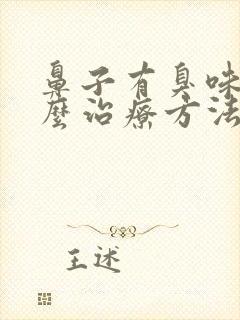 鼻子有臭味
麼治療方法
王述